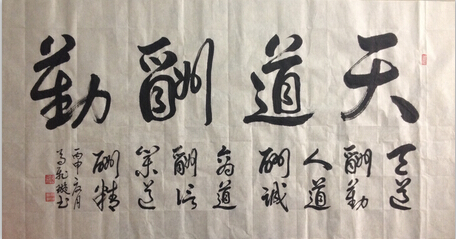 天道酬勤
天道
酬勤
人道
酬誠
商道
酬信
業道
酬精
丙申
月
書